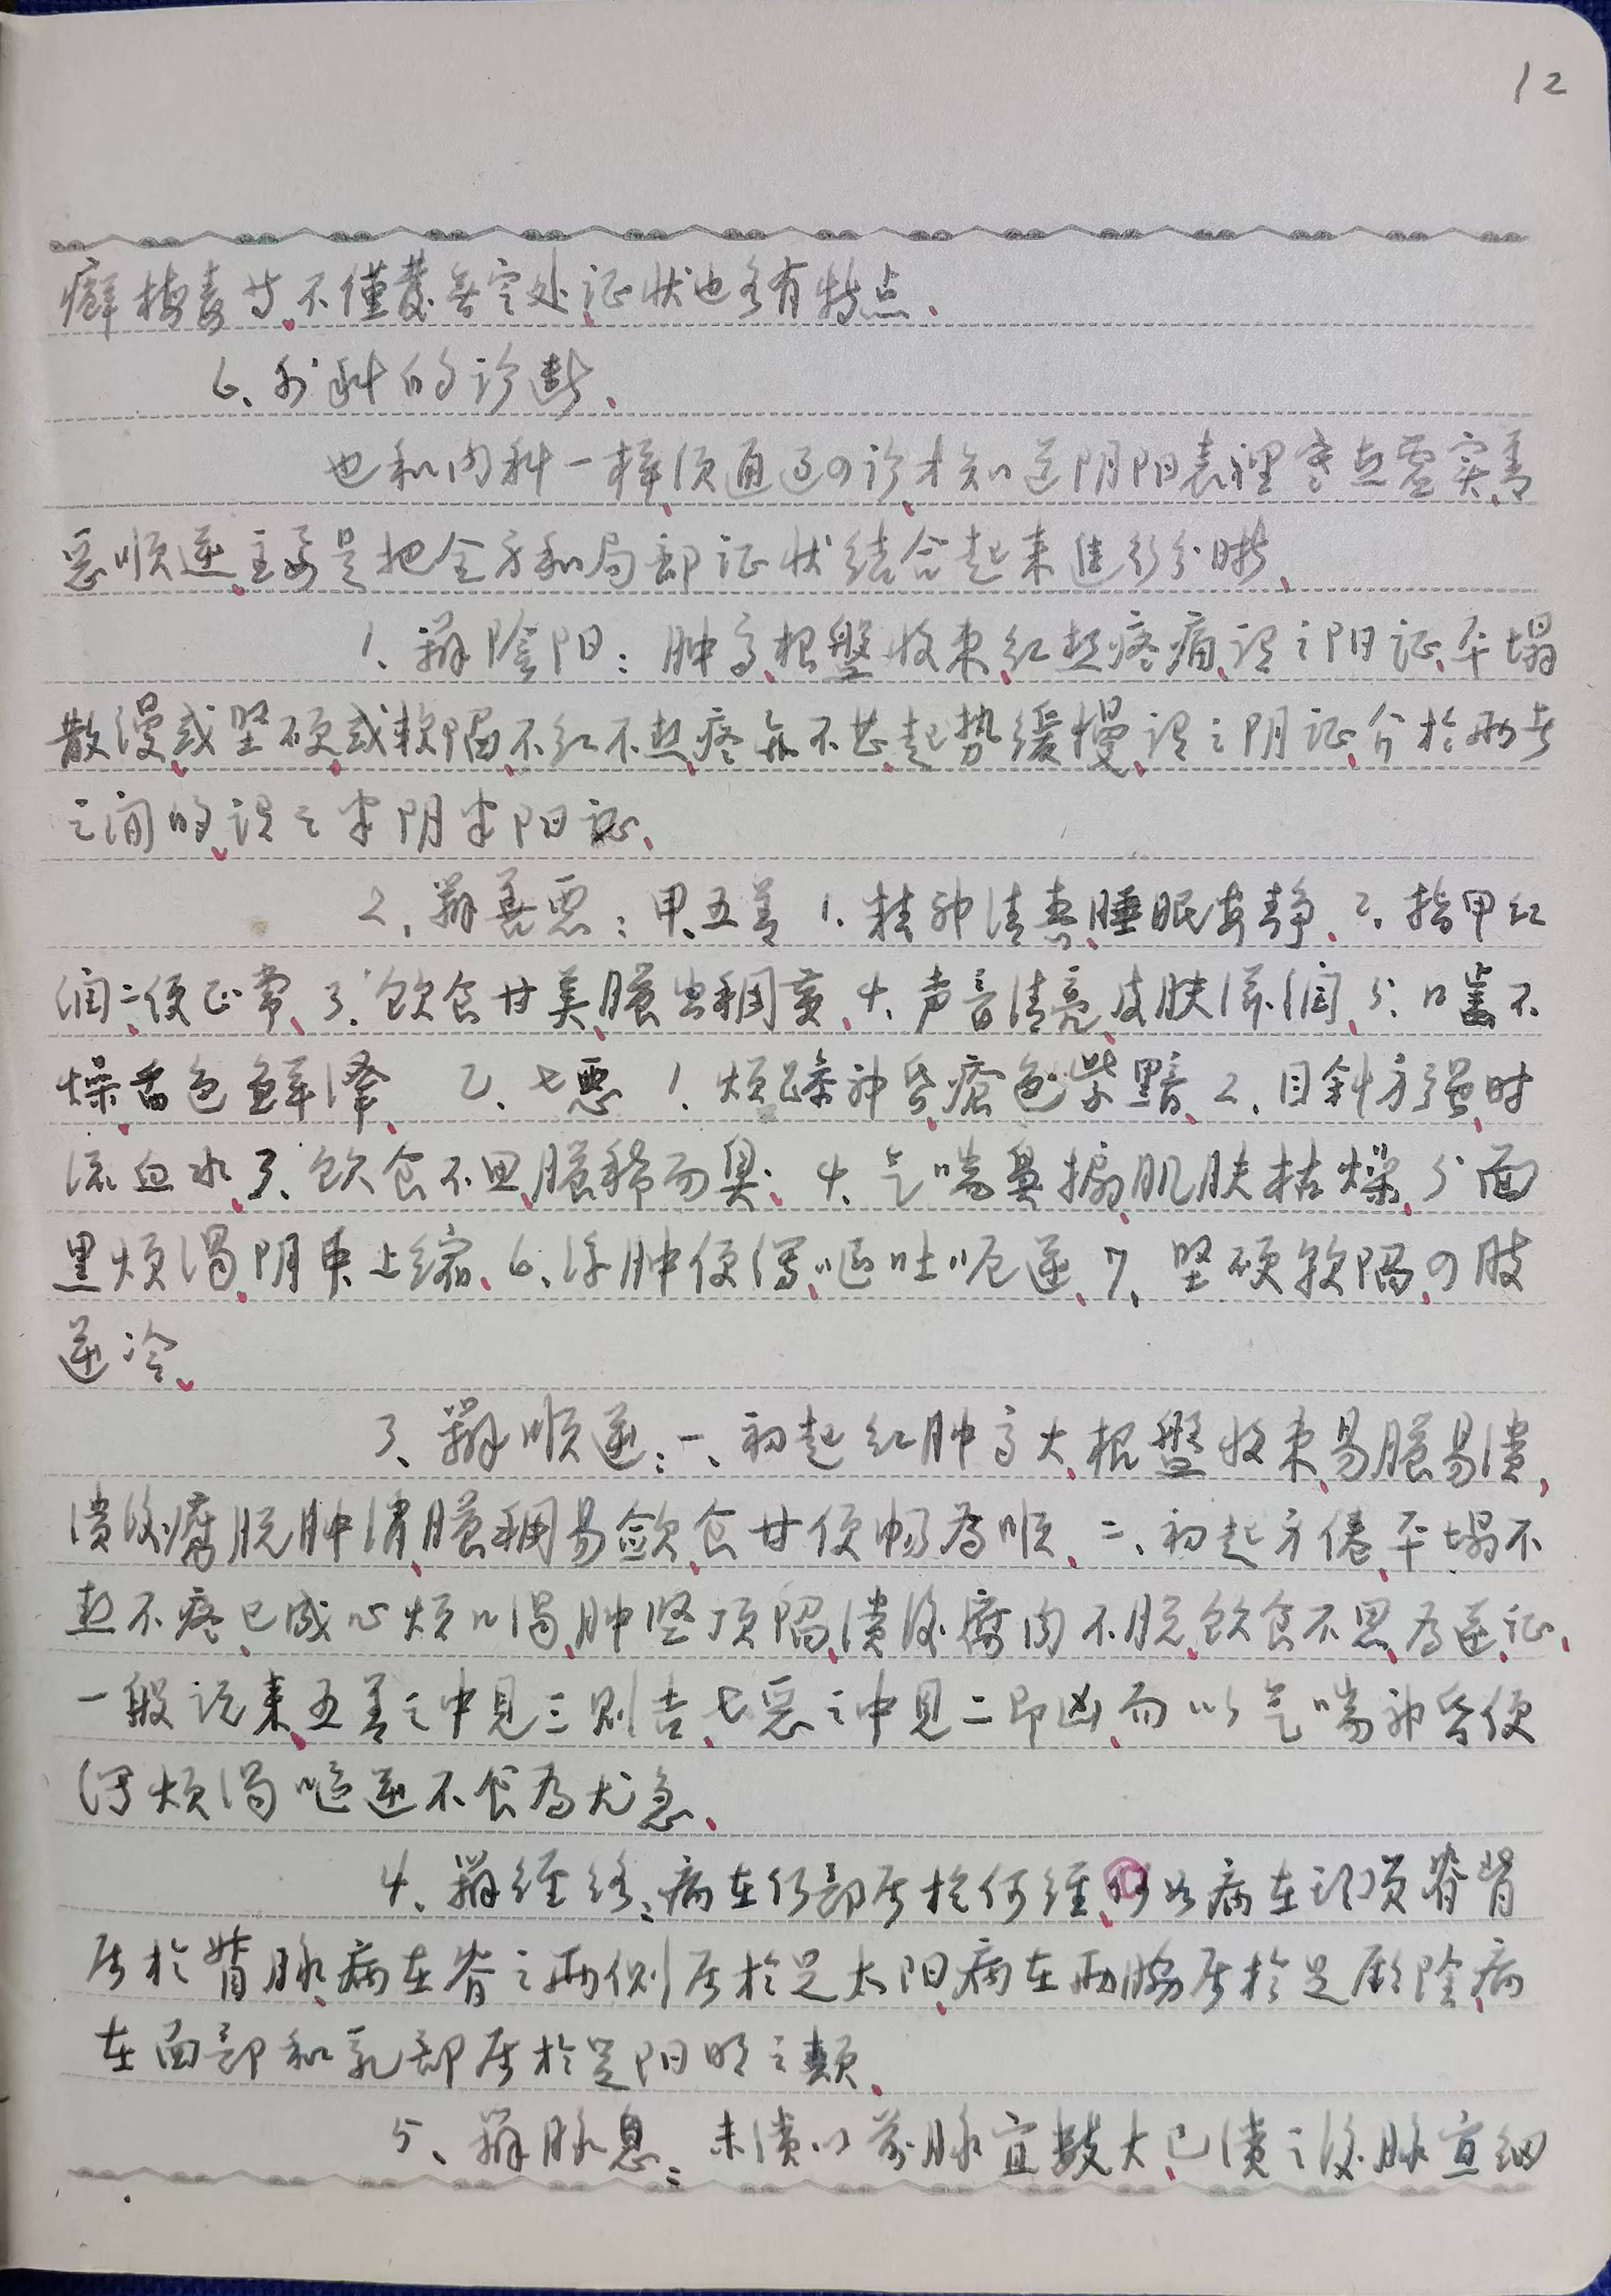 12
癣梅毒等、不僅發無定处、证状也多有特点、
6、外科的诊断、
也和内科一样、须通过四诊、才知道阴阳表裡寒热虚实、善
恶顺逆、主要是把全身和局部证状结合起来進行分晰、
1、辨陰阳：肿高、根盤收束、红热疼痛、谓之阳证、平塌
散漫、或坚硬、或软陷、不红不热、疼亦不甚、起势缓慢、谓之阴证、介於两者
之间的、谓之半阴半阳证、
2、辨善悪：甲、五善 1、精神清爽、睡眠安静、2、指甲红
润、二便正常、3、飲食甘美、膿出稠黄、4、声音清亮、皮肤滋润、5、口齒不
燥、舌色鲜泽、 乙、七悪 1、烦躁神昏、瘡色紫黯、2、目斜方强、时
流血水、3、飲食不思、膿稀而臭、4、气喘鼻搧、肌肤枯燥、5、面
黑烦渴、阴束上缩、6、浮肿便泻、呕吐呃逆、7、坚硬软陷、四肢
逆冷、
3、辨顺逆：一、初起红肿高大、根盤收束、易膿易溃、
溃後腐脱肿消、膿稠易歛、食甘便畅為顺、二、初起身倦、平塌不
热不疼、已成心烦口渴、肿坚顶陷、溃後腐肉不脱、飲食不思、為逆证、
一般说来、五善之中見三则吉、七恶之中見二即凶、而以气喘神昏便
泻烦渴呕逆不食為尤急、
4、辨经络：病在何部属於何经、例如病在头项脊背
属於督脉、病在脊之两侧属於足太阳、病在两脇属於足厥陰、病
在面部和乳部属於足阳明之類、
5、辨脉息：未溃以前脉宜数大、已溃之後脉宜细